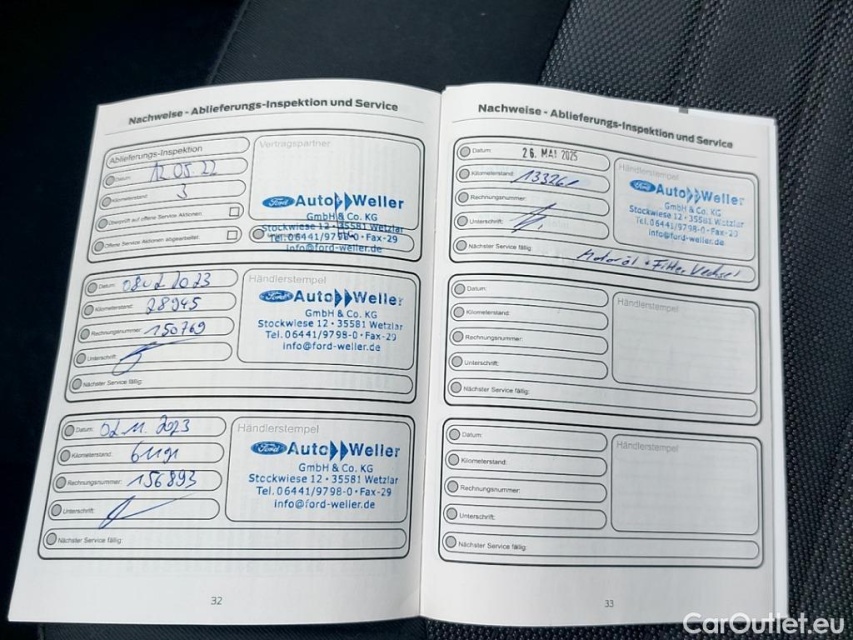 Nachweise - Ablieferungs-Inspektion und Service
Ablieferungs-Inspektion
Datum: 12 05 22
Kilometerstand: 3
Überprüft auf offene Service Aktionen:
Offene Service Aktionen abgearbeitet:
Vertragspartner
Ford Auto Weller
GmbH & Co. KG
Stockwiese 12 · 35581 Wetzlar
Tel. 06441/9798-0 · Fax-29
info@ford-weller.de
Datum: 2023
Kilometerstand: 28945
Rechnungsnummer: 150769
Unterschrift:
Nächster Service fällig:
Händlerstempel
Ford Auto Weller
GmbH & Co. KG
Stockwiese 12 · 35581 Wetzlar
Tel. 06441/9798-0 · Fax-29
info@ford-weller.de
Datum: 02.11.2023
Kilometerstand: 61191
Rechnungsnummer: 156893
Unterschrift:
Nächster Service fällig:
Händlerstempel
Ford Auto Weller
GmbH & Co. KG
Stockwiese 12 · 35581 Wetzlar
Tel. 06441/9798-0 · Fax-29
info@ford-weller.de
32
Nachweise - Ablieferungs-Inspektion und Service
Datum: 26. MAI 2025
Kilometerstand: 133261
Rechnungsnummer:
Unterschrift:
Nächster Service fällig:
Motoröl + Filter Wechsel
Händlerstempel
Ford Auto Weller
GmbH & Co. KG
Stockwiese 12 · 35581 Wetzlar
Tel. 06441/9798-0 · Fax-29
info@ford-weller.de
Datum:
Kilometerstand:
Rechnungsnummer:
Unterschrift:
Nächster Service fällig:
Händlerstempel
Datum:
Kilometerstand:
Rechnungsnummer:
Unterschrift:
Nächster Service fällig:
Händlerstempel
33
CarOutlet.eu